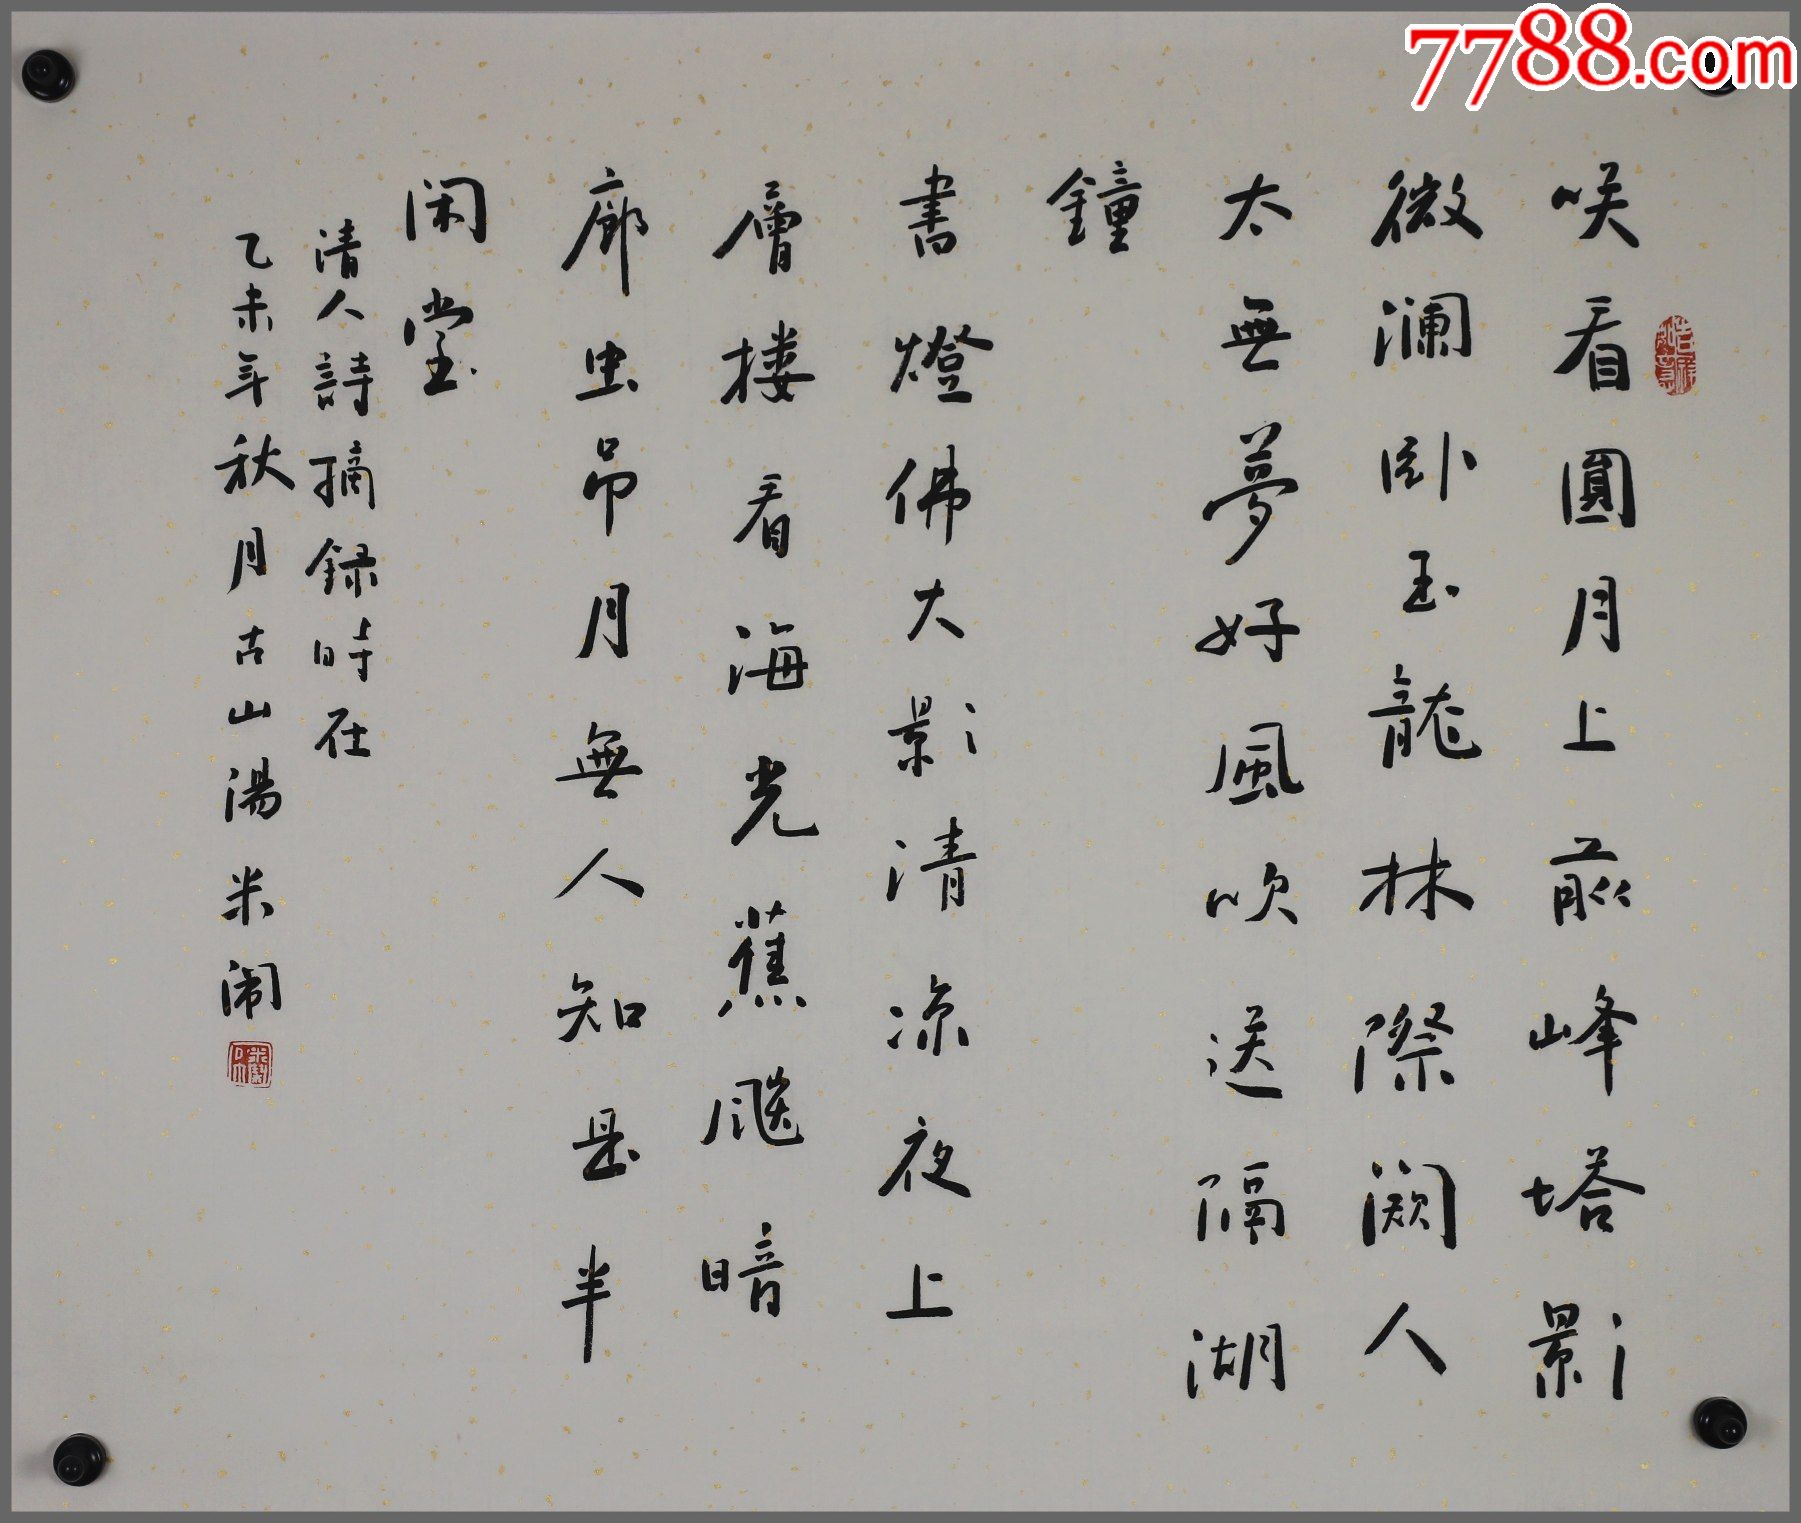 7788.com
咲看圓月上前峰塔影
微澜卧玉龍林際闕人
太無夢好風吹送隔湖
鐘
書燈佛大影清凉夜上
層楼看海光蕉颸暗
廊虫吊月無人知是半
闲堂
清人詩摘録時在
乙未年秋月古山湯米闹